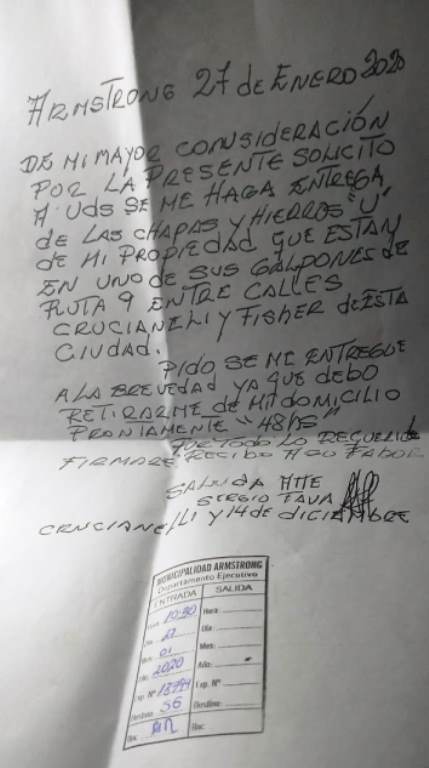 ARMSTRONG 27 de ENERO 2020
DE MI MAYOR CONSIDERACIÓN
POR LA PRESENTE SOLICITO
A Uds SE ME HAGA ENTREGA
de LAS CHAPAS Y HIERROS "U"
de MI PROPIEDAD QUE ESTAN
EN UNO DE SUS GALPONES de
RUTA 9 ENTRE CALLES
CRUCIANELLI Y FISHER dE ESTA
CIUDAD.
PIDO SE ME ENTREGUE
A LA BREVEDAD YA QUE DEBO
RETIRARME de MI DOMICILIO
PRONTAMENTE "48HS"
POR TODO LO REQUERIdo
FIRMARE RECIBO A SU FABOR
SALUDA ATTE
SERGIO FAVA
CRUCIANELLI Y 14 DE DICIEMBRE
MUNICIPALIDAD ARMSTRONG
Departamento Ejecutivo
ENTRADA SALIDA
Hora: 10:30 Hora:
Día: 27 Día:
Mes: 01 Mes:
Año: 2020 Año:
Exp. Nº Exp. Nº
Destino: 56 Destino:
Rec. Rec.